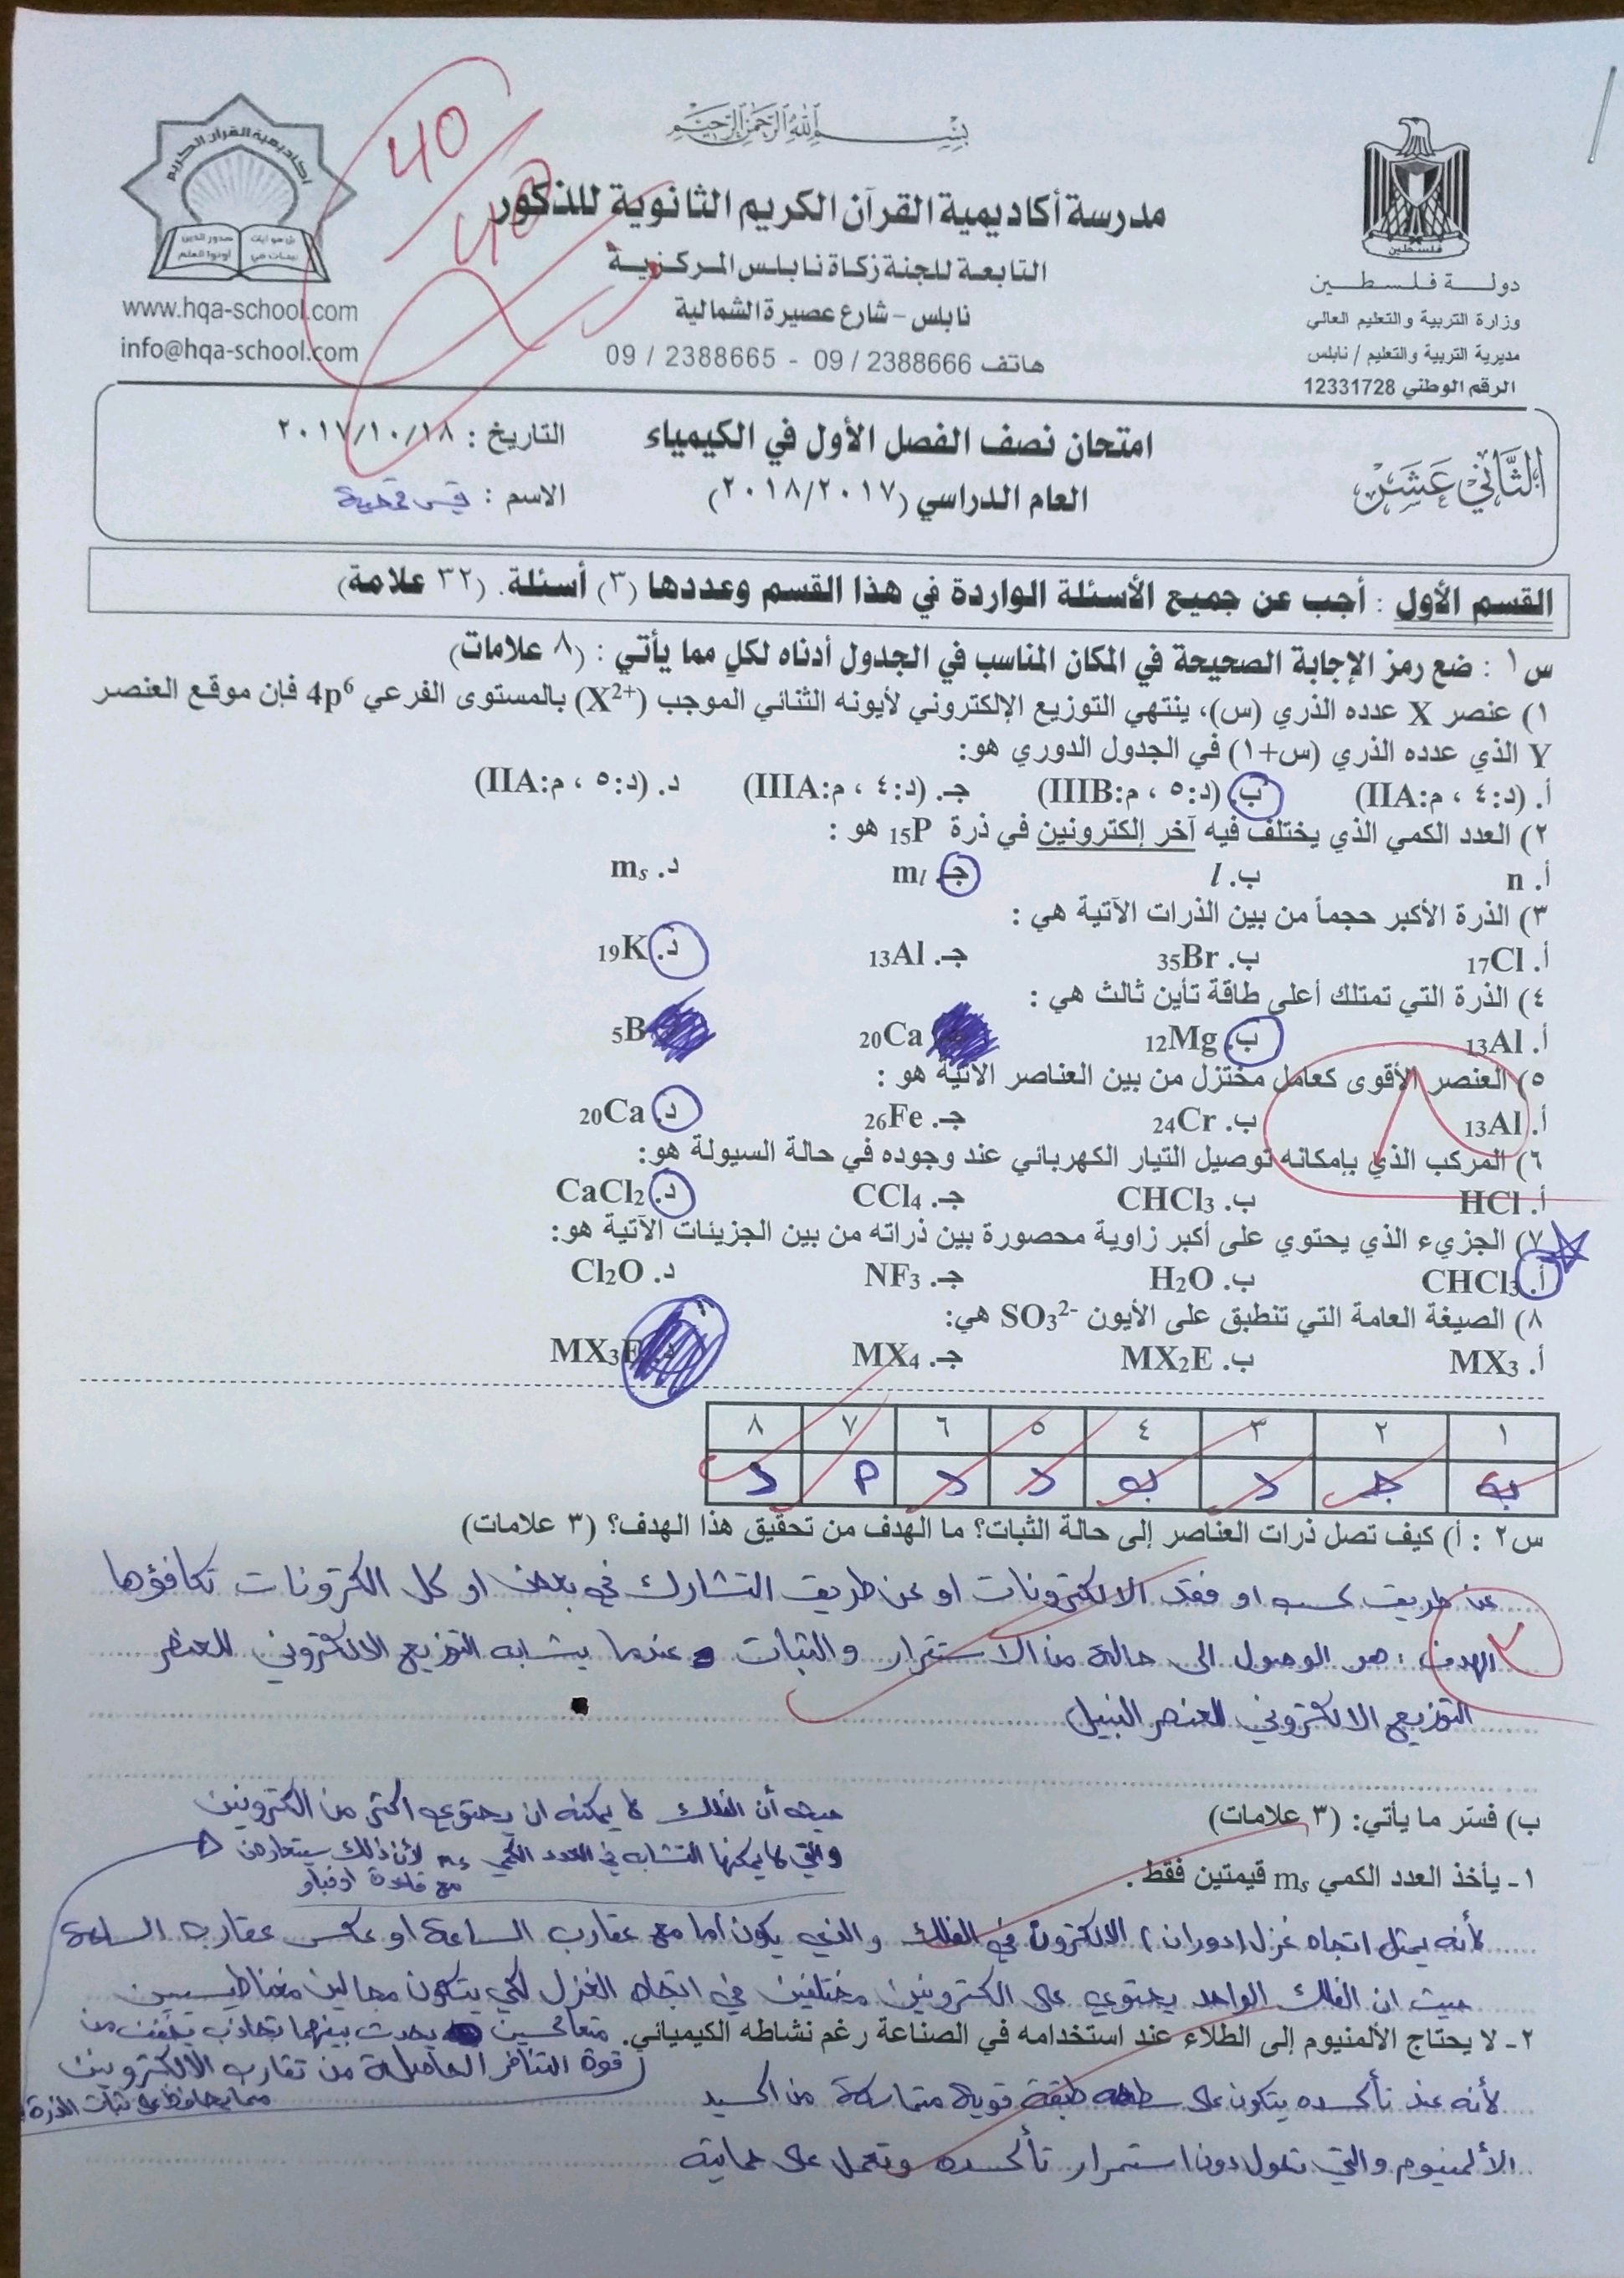 بسم الله الرحمن الرحيم
40/40
أكاديمية القرآن الكريم
www.hqa-school.com
info@hqa-school.com
مدرسة أكاديمية القرآن الكريم الثانوية للذكور
التابعة للجنة زكاة نابلس المركزية
نابلس - شارع عصيرة الشمالية
هاتف 09 / 2388666 - 09 / 2388665
فلسطين
دولة فلسطين
وزارة التربية والتعليم العالي
مديرية التربية والتعليم / نابلس
الرقم الوطني 12331728
الثاني عشر
امتحان نصف الفصل الأول في الكيمياء
العام الدراسي (٢٠١٨/٢٠١٧)
التاريخ : ٢٠١٧/١٠/١٨
الاسم : قيس
القسم الأول : أجب عن جميع الأسئلة الواردة في هذا القسم وعددها (٣) أسئلة. (٣٢ علامة)
س١ : ضع رمز الإجابة الصحيحة في المكان المناسب في الجدول أدناه لكلٍ مما يأتي : (٨ علامات)
١) عنصر X عدده الذري (س)، ينتهي التوزيع الإلكتروني لأيونه الثنائي الموجب (X²⁺) بالمستوى الفرعي 4p⁶ فإن موقع العنصر
Y الذي عدده الذري (س+١) في الجدول الدوري هو:
أ. (د:٤ ، م:IIA) ب. (د:٥ ، م:IIIB) جـ. (د:٤ ، م:IIIA) د. (د:٥ ، م:IIA)
٢) العدد الكمي الذي يختلف فيه آخر إلكترونين في ذرة ₁₅P هو :
أ. n ب. l جـ. mₗ د. mₛ
٣) الذرة الأكبر حجماً من بين الذرات الآتية هي :
أ. ₁₇Cl ب. ₃₅Br جـ. ₁₃Al د. ₁₉K
٤) الذرة التي تمتلك أعلى طاقة تأين ثالث هي :
أ. ₁₃Al ب. ₁₂Mg ₂₀Ca ₅B
٥) العنصر الأقوى كعامل مختزل من بين العناصر الآتية هو :
أ. ₁₃Al ب. ₂₄Cr جـ. ₂₆Fe د. ₂₀Ca
٦) المركب الذي بإمكانه توصيل التيار الكهربائي عند وجوده في حالة السيولة هو:
أ. HCl ب. CHCl₃ جـ. CCl₄ د. CaCl₂
٧) الجزيء الذي يحتوي على أكبر زاوية محصورة بين ذراته من بين الجزيئات الآتية هو:
أ. CHCl₃ ب. H₂O جـ. NF₃ د. Cl₂O
٨) الصيغة العامة التي تنطبق على الأيون SO₃²⁻ هي:
أ. MX₃ ب. MX₂E جـ. MX₄ MX₃E
١ ٢ ٣ ٤ ٥ ٦ ٧ ٨
ب جـ د ب د د أ د
٨
س٢ : أ) كيف تصل ذرات العناصر إلى حالة الثبات؟ ما الهدف من تحقيق هذا الهدف؟ (٣ علامات)
عن طريق كسب او فقد الالكترونات او عن طريق التشارك في بعض او كل الكترونات تكافؤها
الهدف : هو الوصول الى حالة من الاستقرار والثبات عندما يشابه التوزيع الالكتروني للعنصر
التوزيع الالكتروني للعنصر النبيل
ب) فسّر ما يأتي: (٣ علامات)
حيث أن الفلك لا يمكنه ان يحتوي اكثر من الكترونين
والتي لا يمكنها التشابه في العدد الكمي ms لأن ذلك سيتعارض
مع قاعدة اوفباو
١- يأخذ العدد الكمي mₛ قيمتين فقط.
لأنه يمثل اتجاه غزل (دوران) الالكترون في الفلك والذي يكون اما مع عقارب الساعة او عكس عقارب الساعة
حيث ان الفلك الواحد يحتوي على الكترونين مختلفين في اتجاه الغزل لكي يتكون مجالين مغناطيسيين
متعاكسين يحدث بينهما تجاذب يخفف من
قوة التنافر الحاصلة من تقارب الالكترونين
مما يحافظ على ثبات الذرة
٢- لا يحتاج الألمنيوم إلى الطلاء عند استخدامه في الصناعة رغم نشاطه الكيميائي.
لأنه عند تأكسده يتكون على سطحه طبقة قوية متماسكة من اكسيد
الألمنيوم والتي تحول دون استمرار تأكسده وتعمل على حمايته